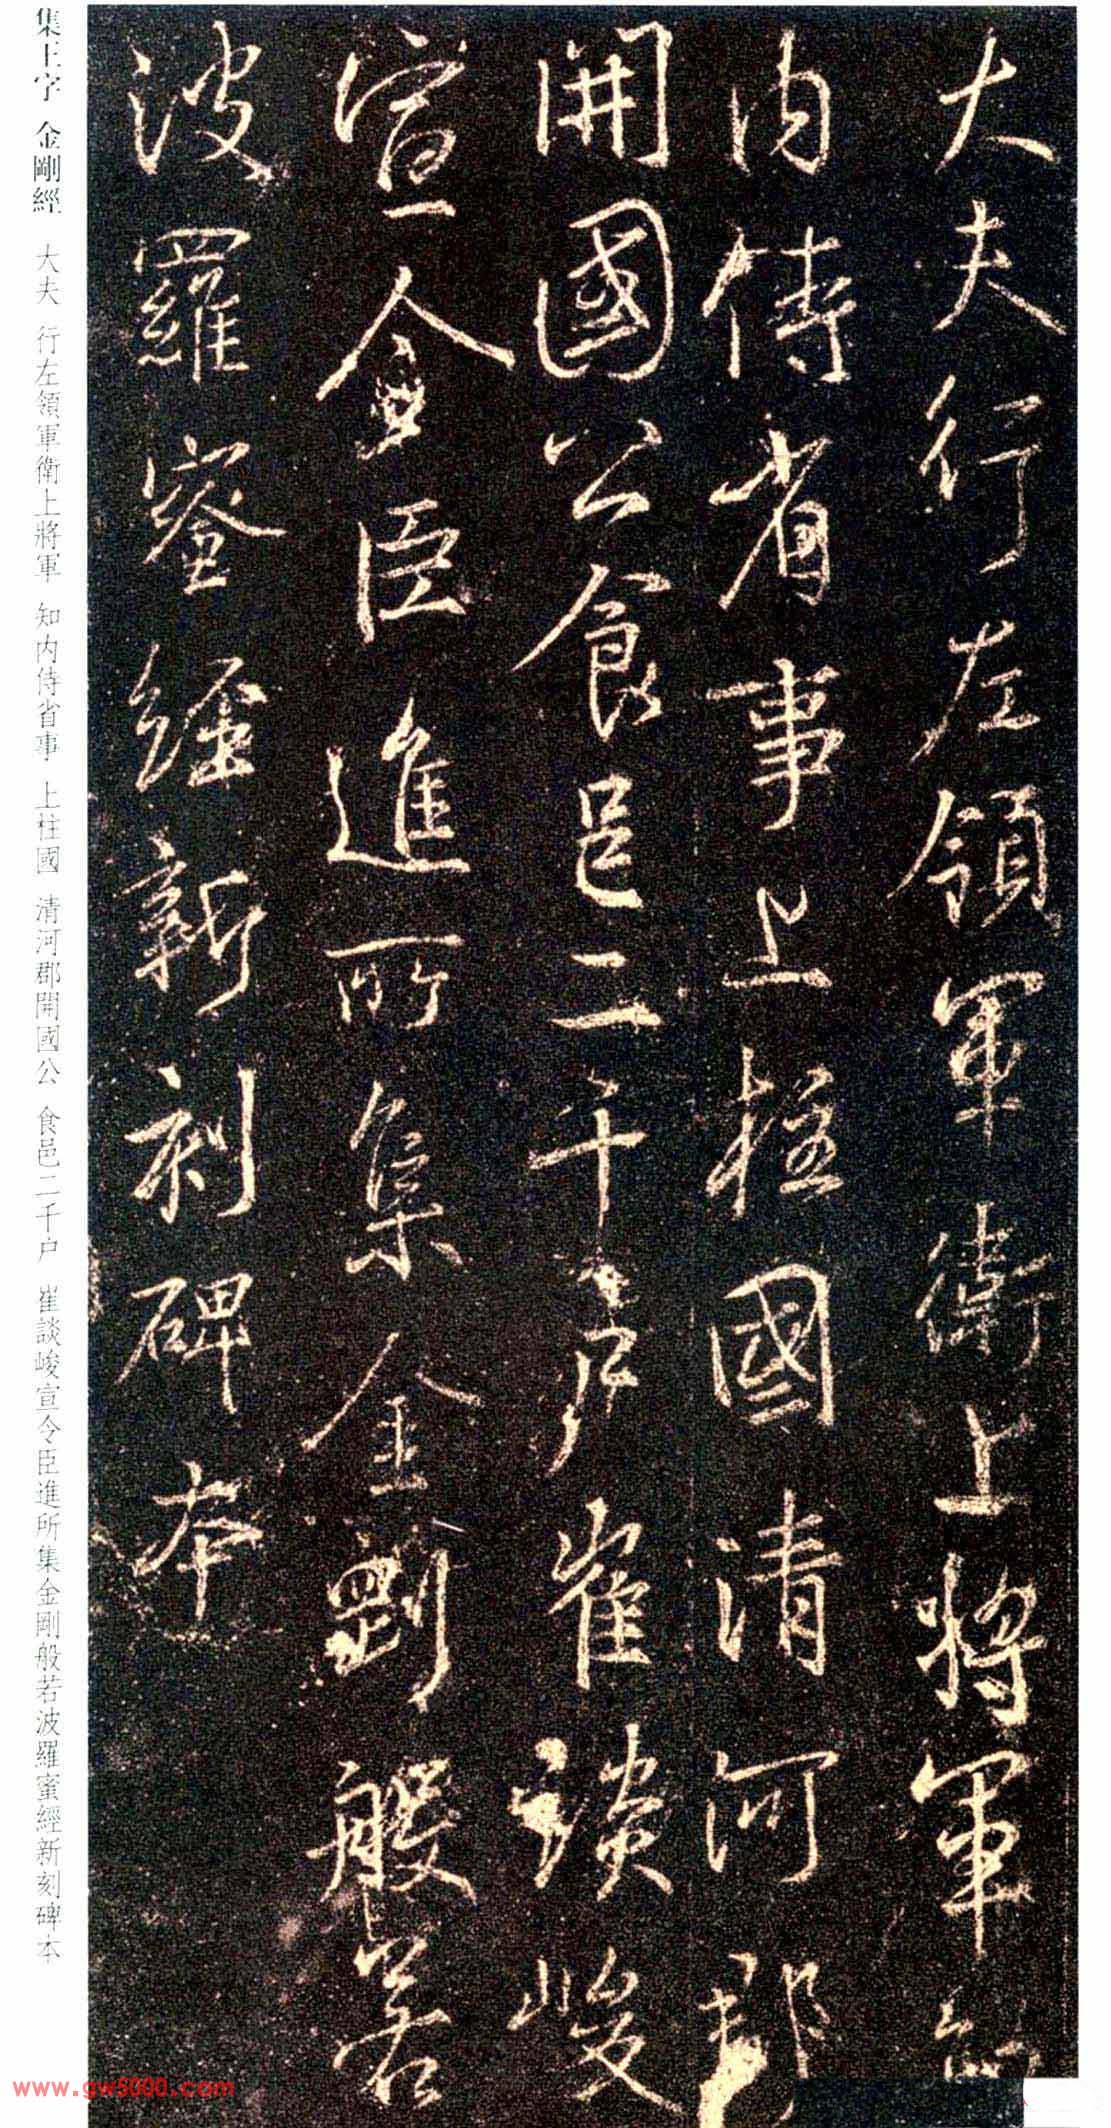 大夫行左領軍衛上將軍知
内侍省事上柱國清河郡
開國公食邑二千戶崔談峻
宣令臣進所集金剛般若
波羅蜜經新刻碑本
集王字 金剛經 大夫 行左領軍衛上將軍 知内侍省事 上柱國 清河郡開國公 食邑二千户 崔談峻宣令臣進所集金剛般若波羅蜜經新刻碑本
www.gw5000.com